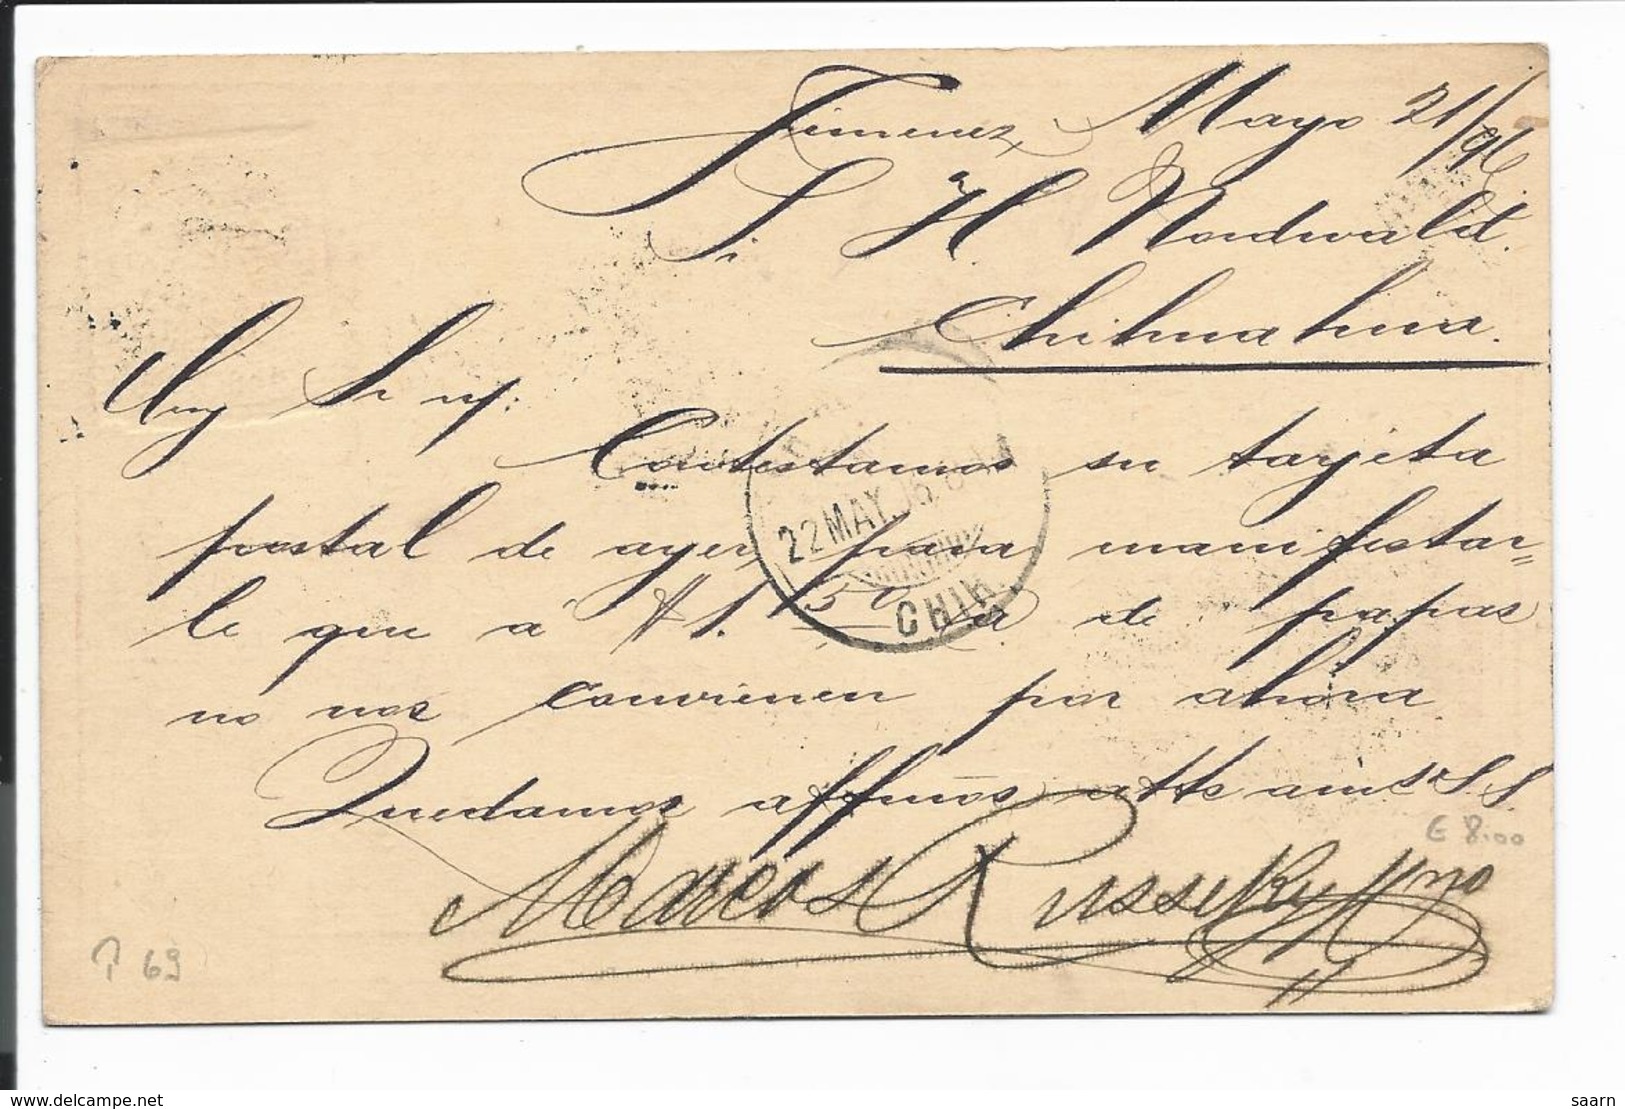 Jimenez, Mayo 21/96
Sr. H. Nordwald.
Chihuahua.
Muy Sr. n/:
Contestamos su tarjeta
postal de ayer, para manifestar-
le que á $1.50 @ de papas
no nos convienen por ahora
Quedamos affmos atts ams S.S.
Marcos Russek y Hno
22 MAY. 96
CHIH.
€ 8.00
P 69
www.delcampe.net
saarn